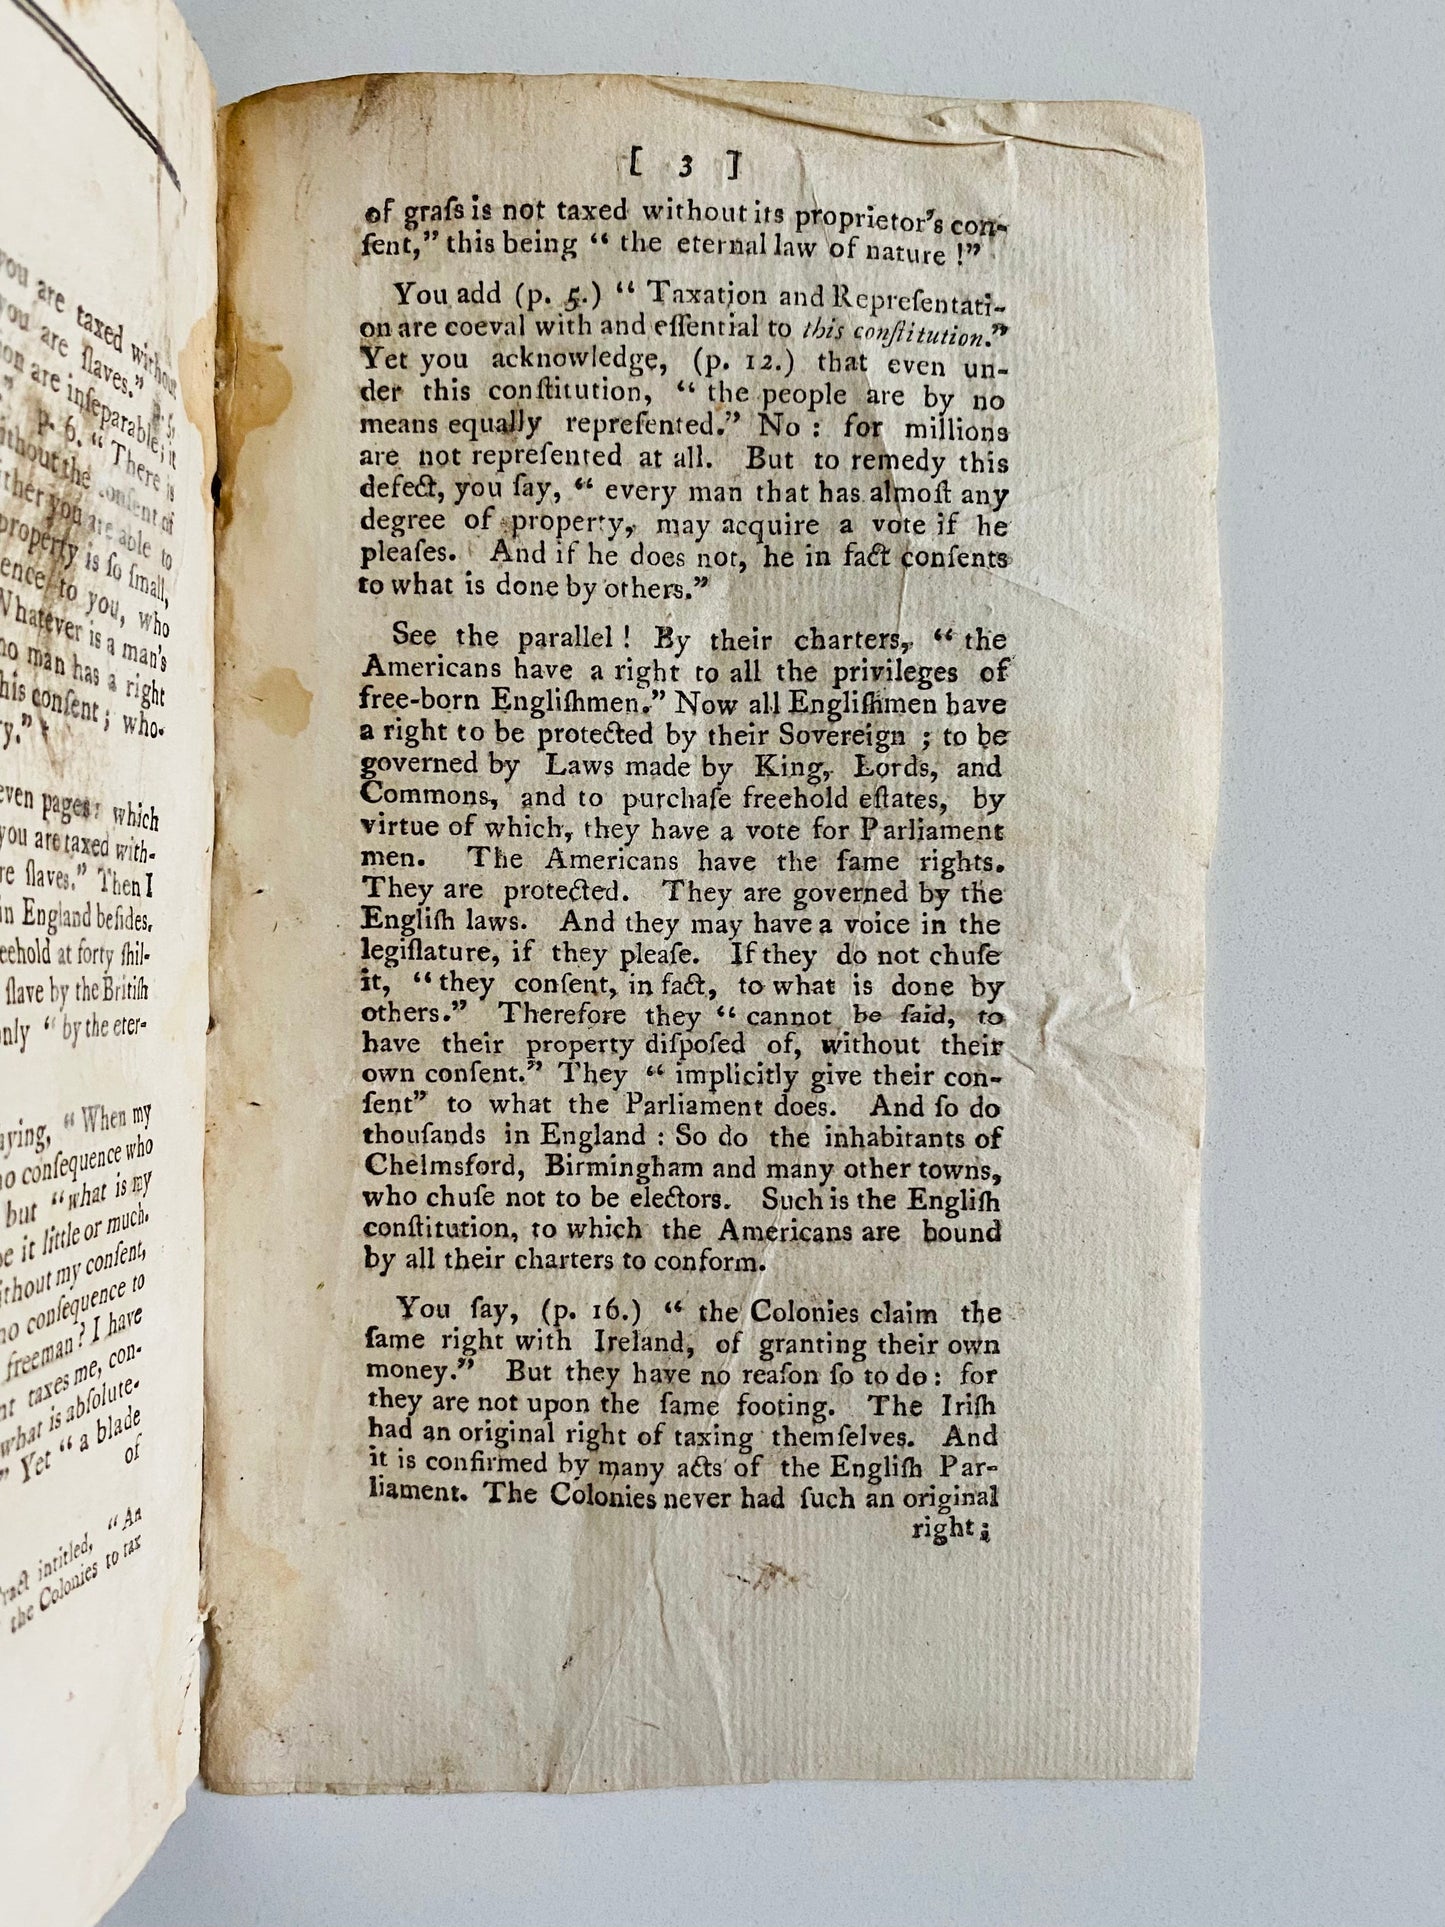 you are taxed without
you are ſlaves."
on are inſeparable; it
p. 6. " There is
ithout the conſent of
ther you are able to
property is ſo ſmall,
ence to you, who
Whatever is a man's
no man has a right
his conſent; who-
y."
even pages: which
you are taxed with-
re ſlaves." Then I
in England beſides,
eehold at forty ſhil-
ſlave by the Britiſh
only " by the eter-
aying, " When my
no conſequence who
but " what is my
be it little or much.
ithout my conſent,
no conſequence to
freeman? I have
nt taxes me, con-
what is abſolute-
" Yet " a blade
of
ract intitled, " An
the Colonies to tax
[ 3 ]
of graſs is not taxed without its proprietor's con-
ſent," this being " the eternal law of nature !"
You add (p. 5.) " Taxation and Repreſentati-
on are coeval with and eſſential to this conſtitution."
Yet you acknowledge, (p. 12.) that even un-
der this conſtitution, " the people are by no
means equally repreſented." No : for millions
are not repreſented at all. But to remedy this
defect, you ſay, " every man that has almoſt any
degree of property, may acquire a vote if he
pleaſes. And if he does not, he in fact conſents
to what is done by others."
See the parallel ! By their charters, " the
Americans have a right to all the privileges of
free-born Engliſhmen." Now all Engliſhmen have
a right to be protected by their Sovereign ; to be
governed by Laws made by King, Lords, and
Commons, and to purchaſe freehold eſtates, by
virtue of which, they have a vote for Parliament
men. The Americans have the ſame rights.
They are protected. They are governed by the
Engliſh laws. And they may have a voice in the
legiſlature, if they pleaſe. If they do not chuſe
it, " they conſent, in fact, to what is done by
others." Therefore they " cannot be ſaid, to
have their property diſpoſed of, without their
own conſent." They " implicitly give their con-
ſent" to what the Parliament does. And ſo do
thouſands in England : So do the inhabitants of
Chelmsford, Birmingham and many other towns,
who chuſe not to be electors. Such is the Engliſh
conſtitution, to which the Americans are bound
by all their charters to conform.
You ſay, (p. 16.) " the Colonies claim the
ſame right with Ireland, of granting their own
money." But they have no reaſon ſo to do : for
they are not upon the ſame footing. The Iriſh
had an original right of taxing themſelves. And
it is confirmed by many acts of the Engliſh Par-
liament. The Colonies never had ſuch an original
right ;